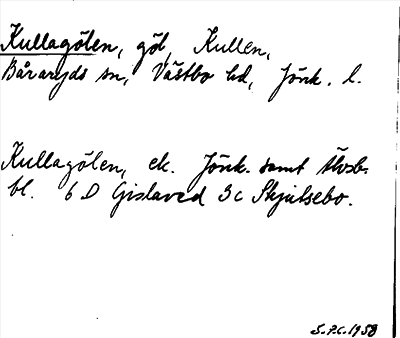 Kullagölen, göl, Kullen,
Båraryds sn, Västbo hd, Jönk. l.
Kullagölen, ek. Jönk. samt Älvsb.
bl. 6 D Gislaved 3c Skjutsebo.
S.P.C. 1958